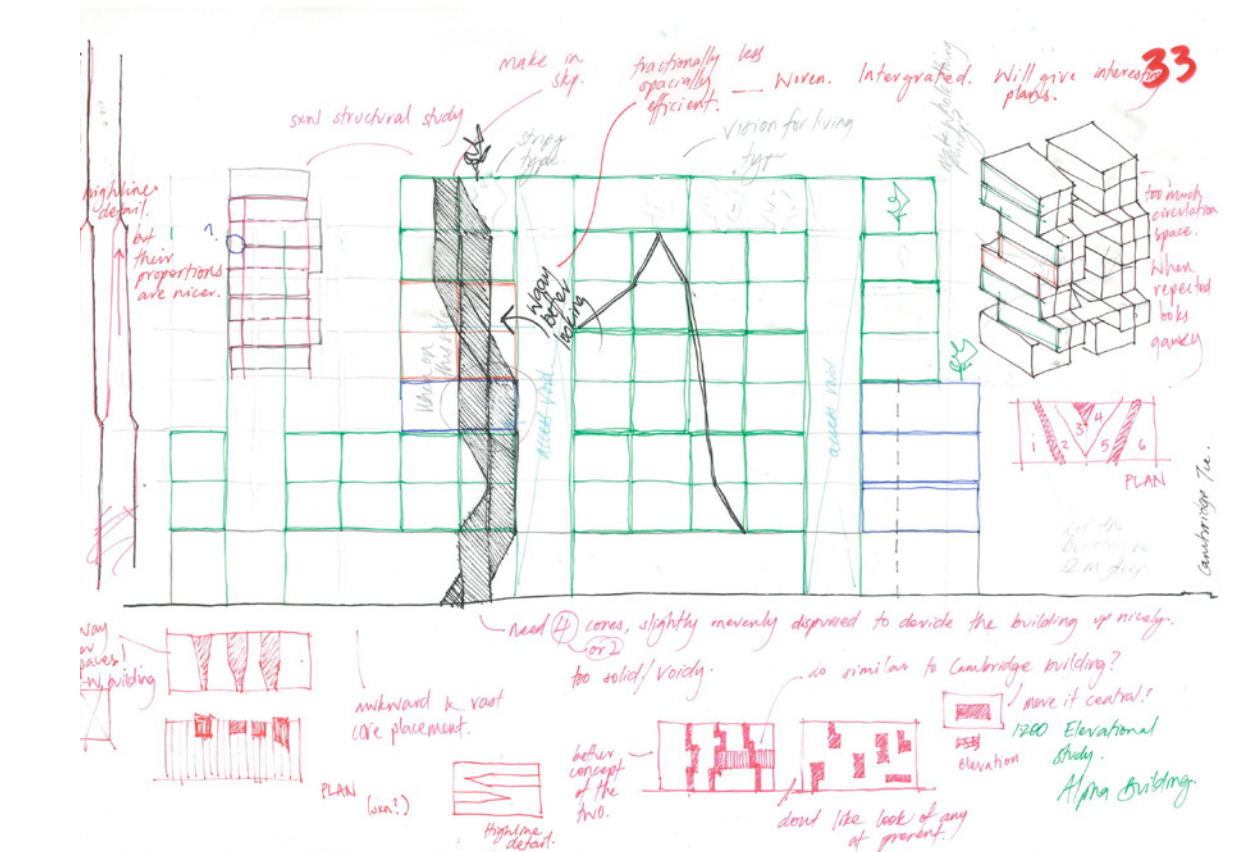 33
make in
skp.
fractionally less
spacially
efficient. — Woven. Intergrated. Will give interesting
plans.
sxn structural study
stripy
type
vision for living
type
highline
detail.
but
their
proportions
are nicer.
?
waay
better
looking
access void
access void
too much
circulation
space.
When
repeated
looks
gawky
1 2 3 4 5 6
PLAN
Cambridge Tce.
12 m deep
need 4 cores, slightly unevenly dispursed to devide the building up nicely.
or 2
too solid/voidy.
building
awkward & vast
core placement.
PLAN
(sxn?)
Highline
detail.
better
concept
of the
two.
do similar to Cambridge building?
dont like look of any
at present.
move it central!
elevation
1:200 Elevational
study.
Alpha Building.